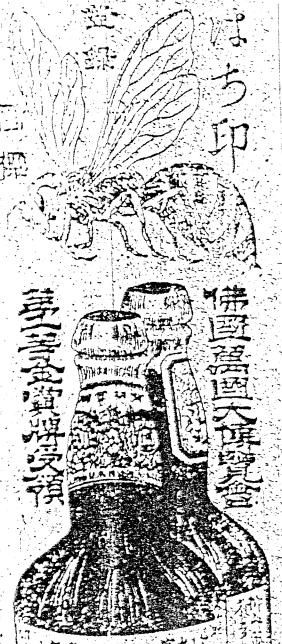 はち印
登録
佛國萬國大博覽會
第一等金賞牌受領